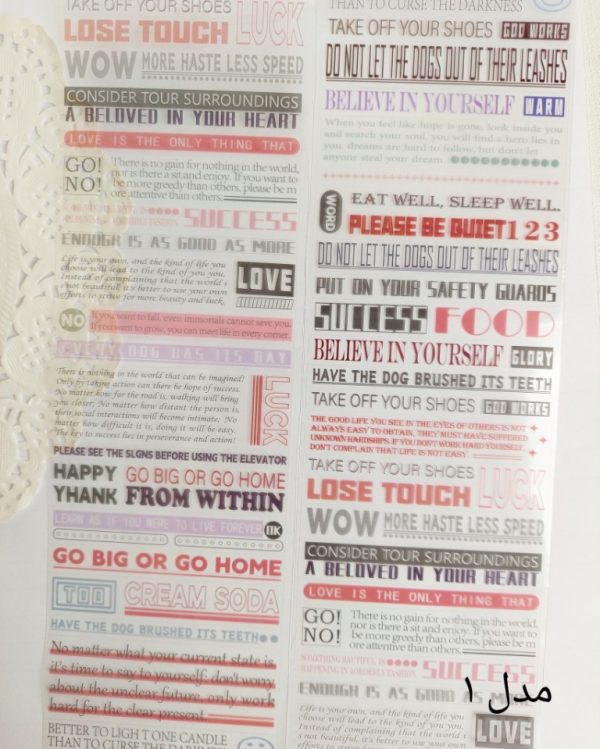 TAKE OFF YOUR SHOES
LOSE TOUCH LUCK
WOW MORE HASTE LESS SPEED
CONSIDER TOUR SURROUNDINGS
A BELOVED IN YOUR HEART
LOVE IS THE ONLY THING THAT
GO! NO!
There is no gain for nothing in the world,
nor is there a sit and enjoy. If you want to
be more greedy than others, please be m
ore attentive than others.
SUCCESS
ENOUGH IS AS GOOD AS MORE
Life is your own, and the kind of life you
choose will lead to the kind of you you.
Instead of complaining that the world i
s not beautiful, it's better to use your own
efforts to strive for more beauty and luck.
LOVE
NO
If you want to fall, even immortals cannot save you.
If you want to grow, you can meet life in every corner.
EVERY DOG HAS ITS DAY
There is nothing in the world that can be imagined!
Only by taking action can there be hope of success.
No matter how far the road is, walking will bring
you closer; No matter how distant the person is,
their social interactions will become intimate; No
matter how difficult it is, doing it will be easy.
The key to success lies in perseverance and action!
LUCK
PLEASE SEE THE SLGNS BEFORE USING THE ELEVATOR
HAPPY GO BIG OR GO HOME
YHANK FROM WITHIN
LEARN AS IF YOU WERE TO LIVE FOREVER OK
GO BIG OR GO HOME
TOO CREAM SODA
HAVE THE DOG BRUSHED ITS TEETH
No matter what your current state is,
it's time to say to yourself: don't worry
about the unclear future, only work
hard for the clear present.
BETTER TO LIGHT ONE CANDLE
THAN TO CURSE THE DARKNESS
THAN TO CURSE THE DARKNESS
TAKE OFF YOUR SHOES GOD WORKS
DO NOT LET THE DOGS OUT OF THEIR LEASHES
BELIEVE IN YOURSELF WARM
When you feel like hope is gone, look inside you
and search your soul, you will find a hero lies in
you. dreams are hard to follow, but don't let
anyone steal your dream.
WORD EAT WELL, SLEEP WELL.
PLEASE BE QUIET 1 2 3
DO NOT LET THE DOGS OUT OF THEIR LEASHES
PUT ON YOUR SAFETY GUARDS
SUCCESS FOOD
BELIEVE IN YOURSELF GLORY
HAVE THE DOG BRUSHED ITS TEETH
TAKE OFF YOUR SHOES GOD WORKS
THE GOOD LIFE YOU SEE IN THE EYES OF OTHERS IS NOT
ALWAYS EASY TO OBTAIN, THEY MUST HAVE SUFFERED
UNKNOWN HARDSHIPS. IF YOU DON'T WORK HARD YOURSELF
DON'T COMPLAIN THAT LIFE IS NOT EASY.
TAKE OFF YOUR SHOES
LOSE TOUCH LUCK
WOW MORE HASTE LESS SPEED
CONSIDER TOUR SURROUNDINGS
A BELOVED IN YOUR HEART
LOVE IS THE ONLY THING THAT
GO! NO!
There is no gain for nothing in the world,
nor is there a sit and enjoy. If you want to
be more greedy than others, please be m
ore attentive than others.
SOMETHING BEAUTIFUL IS
HAPPENING IN LORDERLY FASHION
SUCCESS
ENOUGH IS AS GOOD AS MORE
Life is your own, and the kind of life you
choose will lead to the kind of you you.
Instead of complaining that the world i
s not beautiful, it's better to use your own
LOVE
مدل ۱